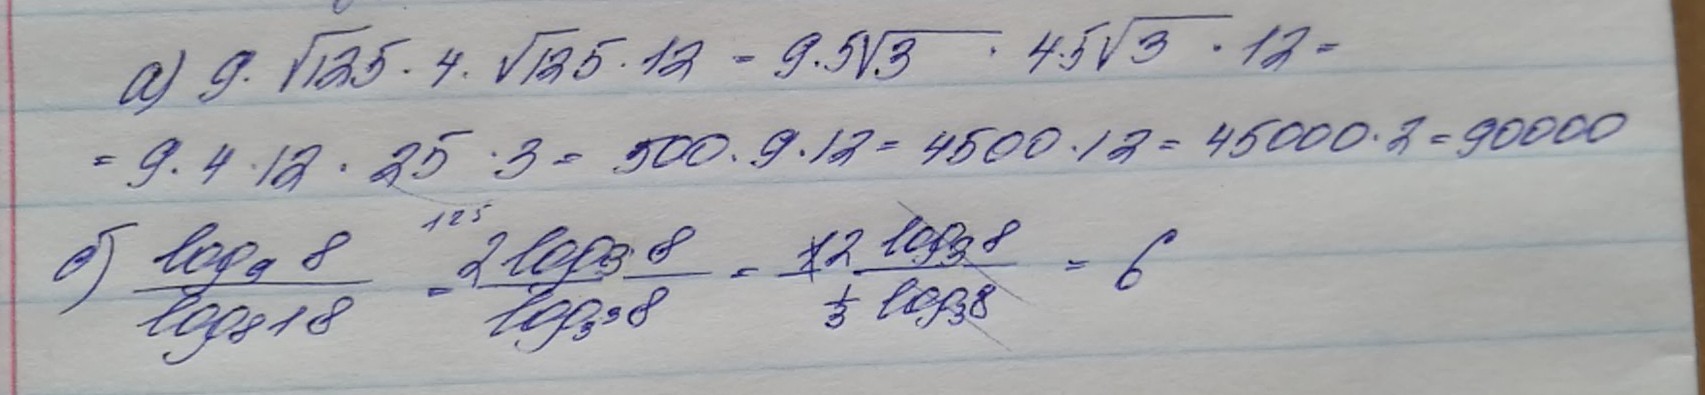 а) 9·√125·4·√125·12 = 9·5√3 · 4·5√3 · 12 =
= 9·4·12·25·3 = 500·9·12 = 4500·12 = 45000·2 = 90000
125
б) log₉ 8 / log₈ 18 = 2 log₃ 8 / log₃³ 8 = 12 log₃ 8 / ⅓ log₃ 8 = 6